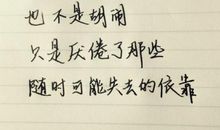 也不是胡闹
只是厌倦了那些
随时可能失去的依靠